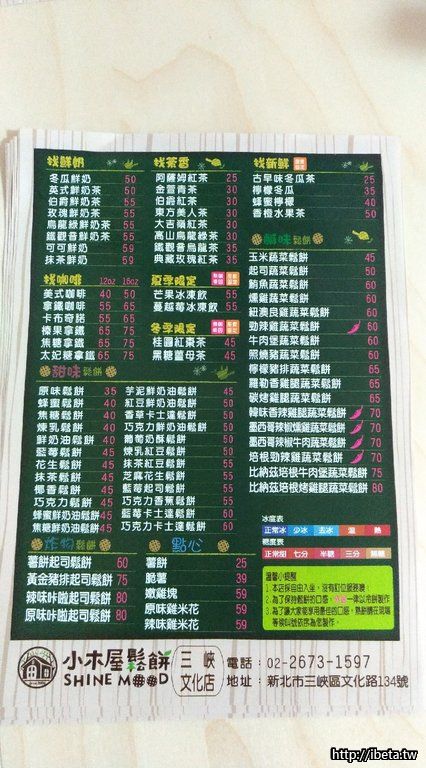 找鮮奶
冬瓜鮮奶 50
英式鮮奶茶 50
伯爵鮮奶茶 55
玫瑰鮮奶茶 55
烏龍綠鮮奶茶 55
鐵觀音鮮奶茶 55
可可鮮奶 59
抹茶鮮奶 59
找茶香
阿薩姆紅茶 25
金萱青茶 30
伯爵紅茶 30
東方美人茶 30
大吉嶺紅茶 30
高山烏龍綠茶 30
鐵觀音烏龍茶 35
典藏玫瑰紅茶 35
找新鮮
古早味冬瓜茶 25
檸檬冬瓜 35
蜂蜜檸檬 40
香橙水果茶 50
找咖啡 12oz 16oz
美式咖啡 40 50
拿鐵咖啡 55 65
卡布奇諾 55 65
榛果拿鐵 65 75
焦糖拿鐵 65 75
太妃糖拿鐵 65 75
夏季限定
芒果冰凍飲 55
蔓越莓冰凍飲 55
冬季限定
桂圓紅棗茶 45
黑糖薑母茶 45
鹹味鬆餅
玉米蔬菜鬆餅 45
起司蔬菜鬆餅 50
鮪魚蔬菜鬆餅 60
燻雞蔬菜鬆餅 60
紐澳良雞蔬菜鬆餅 60
勁辣雞蔬菜鬆餅 60
牛肉堡蔬菜鬆餅 60
照燒豬蔬菜鬆餅 60
檸檬豬排蔬菜鬆餅 65
羅勒香雞腿蔬菜鬆餅 65
碳烤雞腿蔬菜鬆餅 65
韓味香辣雞腿蔬菜鬆餅 70
墨西哥辣椒燻雞蔬菜鬆餅 70
墨西哥辣椒牛肉蔬菜鬆餅 70
培根勁辣雞蔬菜鬆餅 70
比納茲培根牛肉堡蔬菜鬆餅 75
比納茲培根烤雞腿蔬菜鬆餅 80
甜味鬆餅
原味鬆餅 35
蜂蜜鬆餅 40
焦糖鬆餅 40
煉乳鬆餅 40
鮮奶油鬆餅 40
藍莓鬆餅 45
花生鬆餅 45
抹茶鬆餅 45
椰香鬆餅 45
巧克力鬆餅 45
蜂蜜鮮奶油鬆餅 45
焦糖鮮奶油鬆餅 45
芋泥鮮奶油鬆餅 45
紅豆鮮奶油鬆餅 50
香草卡士達鬆餅 50
巧克力鮮奶油鬆餅 50
葡萄奶酥鬆餅 50
煉乳紅豆鬆餅 50
抹茶紅豆鬆餅 55
芝麻花生鬆餅 55
藍莓起司鬆餅 55
巧克力香蕉鬆餅 55
藍莓卡士達鬆餅 60
巧克力卡士達鬆餅 60
炸物鬆餅
薯餅起司鬆餅 60
黃金豬排起司鬆餅 75
辣味咔啦起司鬆餅 80
原味咔啦起司鬆餅 80
點心
薯餅 25
脆薯 39
嫩雞塊 59
原味雞米花 59
辣味雞米花 59
冰度表
正常冰 少冰 去冰 溫 熱
糖度表
正常甜 七分 半糖 三分 無糖
溫馨小提醒
小木屋鬆餅
SHINE MOOD
三峽文化店
電話:02-2673-1597
地址:新北市三峽區文化路134號
http://ibeta.tw